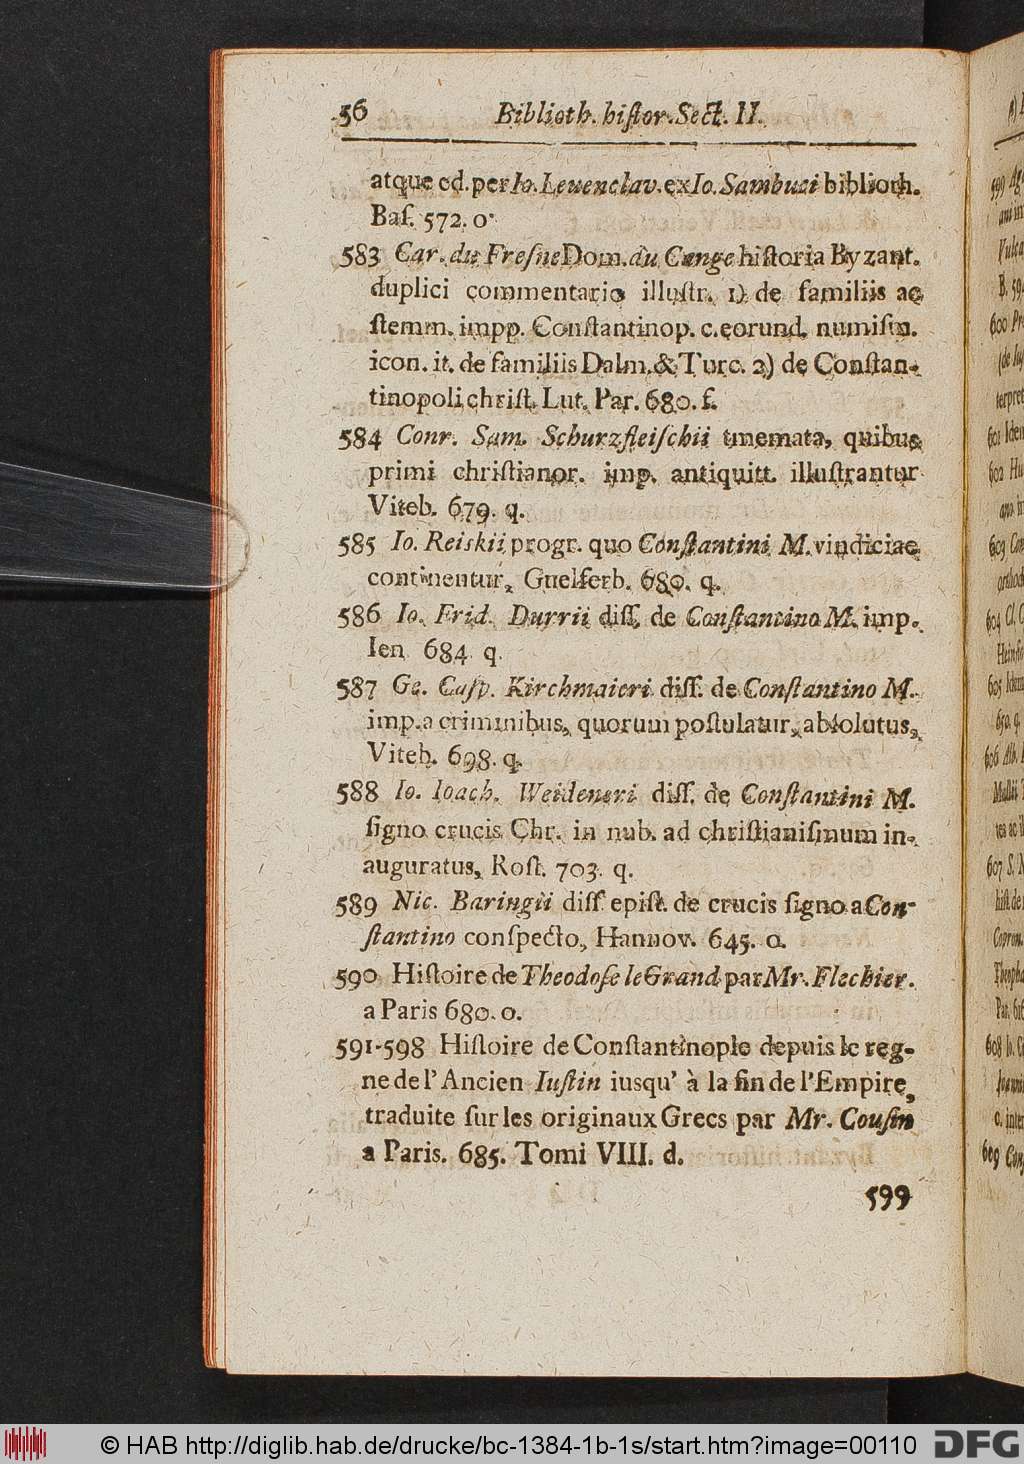 56 Biblioth. histor. Sect. II.
atque ed. per Io. Leuenclav. ex Io. Sambuci biblioth.
Bas. 572. o
583 Car. du Fresne Dom. du Cange historia Byzant.
duplici commentario illustr. 1) de familiis ac
stemm. impp. Constantinop. c. eorund. numism.
icon. it. de familiis Dalm. & Turc. 2) de Constan-
tinopoli christ. Lut. Par. 680. f.
584 Conr. Sam. Schurzfleischii tmemata, quibus
primi christianor. imp. antiquitt. illustrantur
Viteb. 679. q.
585 Io. Reiskii progr. quo Constantini M. vindiciae
continentur, Guelferb. 680. q.
586 Io. Frid. Durrii diss. de Constantino M. imp.
Ien 684 q.
587 Ge. Casp. Kirchmaieri diss. de Constantino M.
imp. a criminibus, quorum postulatur, absolutus,
Viteb. 698. q.
588 Io. Ioach. Weideneri diss. de Constantini M.
signo crucis Chr. in nub. ad christianismum in-
auguratus, Rost. 703. q.
589 Nic. Baringii diss. epist. de crucis signo a Con-
stantino conspecto, Hannov. 645. o.
590 Histoire de Theodose le Grand par Mr. Flechier.
a Paris 680. o.
591-598 Histoire de Constantinople depuis le reg-
ne de l'Ancien Iustin iusqu' à la fin de l'Empire,
traduite sur les originaux Grecs par Mr. Cousin
a Paris. 685. Tomi VIII. d.
599
© HAB http://diglib.hab.de/drucke/bc-1384-1b-1s/start.htm?image=00110 DFG